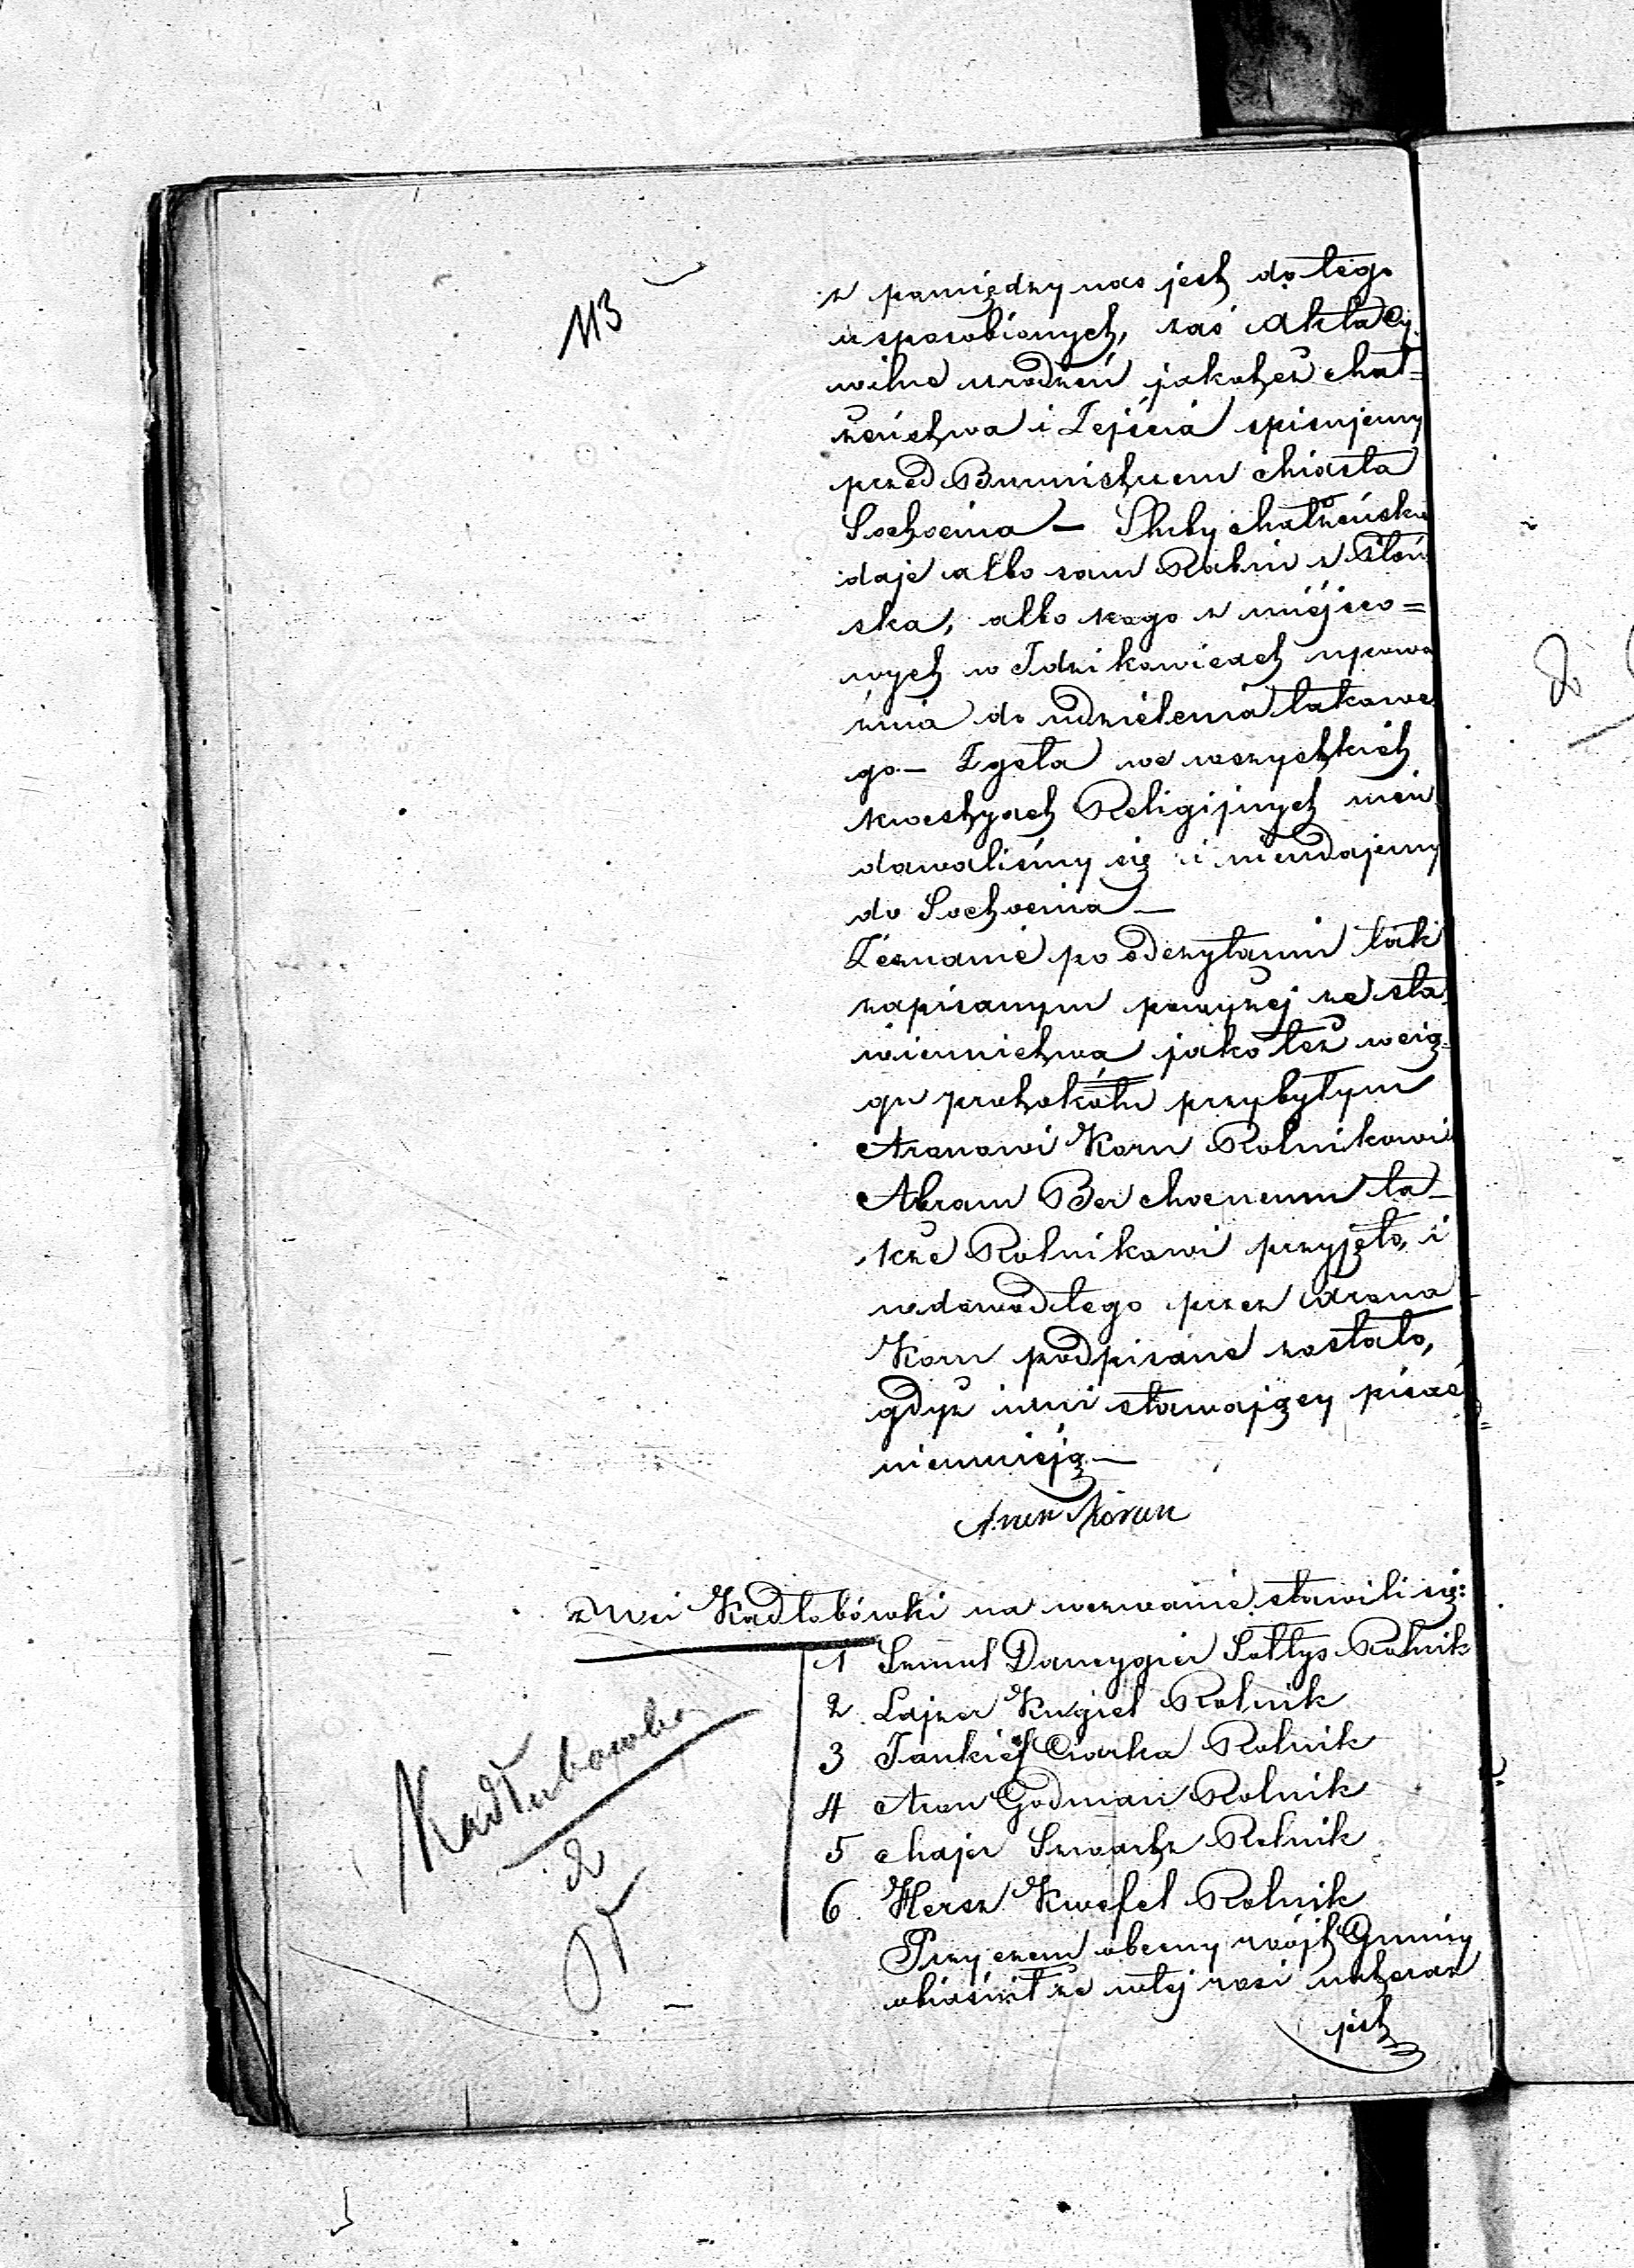 113
z pomiędzy nas jest do tego
usposobionych, zaś Akta Cy-
wilne urodzeń jakoteż Mał=
żeństwa i Zejścia spisujemy
przed Burmistrzem Miasta
Sochocina — Śluby Małżeńskie
daje albo sam Rabin z Płoń
ska, albo kogo z miejsco=
wych w Idzikowicach upowa
żnia do udzielenia takowe
go — Zgoła we wszystkich
kwestyach Religijnych nieu
dawaliśmy się i nieudajemy
do Sochocina —
Zeznanie po odczytaniu tak
zapisanym powyżej ze sta
wiennictwa jako też w cią-
gu protokółu przybyłym
Aronowi Korn Rolnikowi
Abram Ber ta-
kże Rolnikowi przyjęto, i
na dowód tego przez Arona
Korn podpisane zostało,
gdyż inni stawający pisać
nieumieją —
Aron Korn
z Wsi Kadłubówki na wezwanie stawili się:
1 Szmul Dancygier Sołtys Rolnik
2. Lajzer Kugiel Rolnik
3 Jankiel Ciarka Rolnik
4 Aron Godman Rolnik
5 Majer Szwartz Rolnik
6. Hersz Kwefel Rolnik
Kadłubowka
2
Przy czem obecny wójt Gminy
objaśnił że w tej wsi nateraz
jest